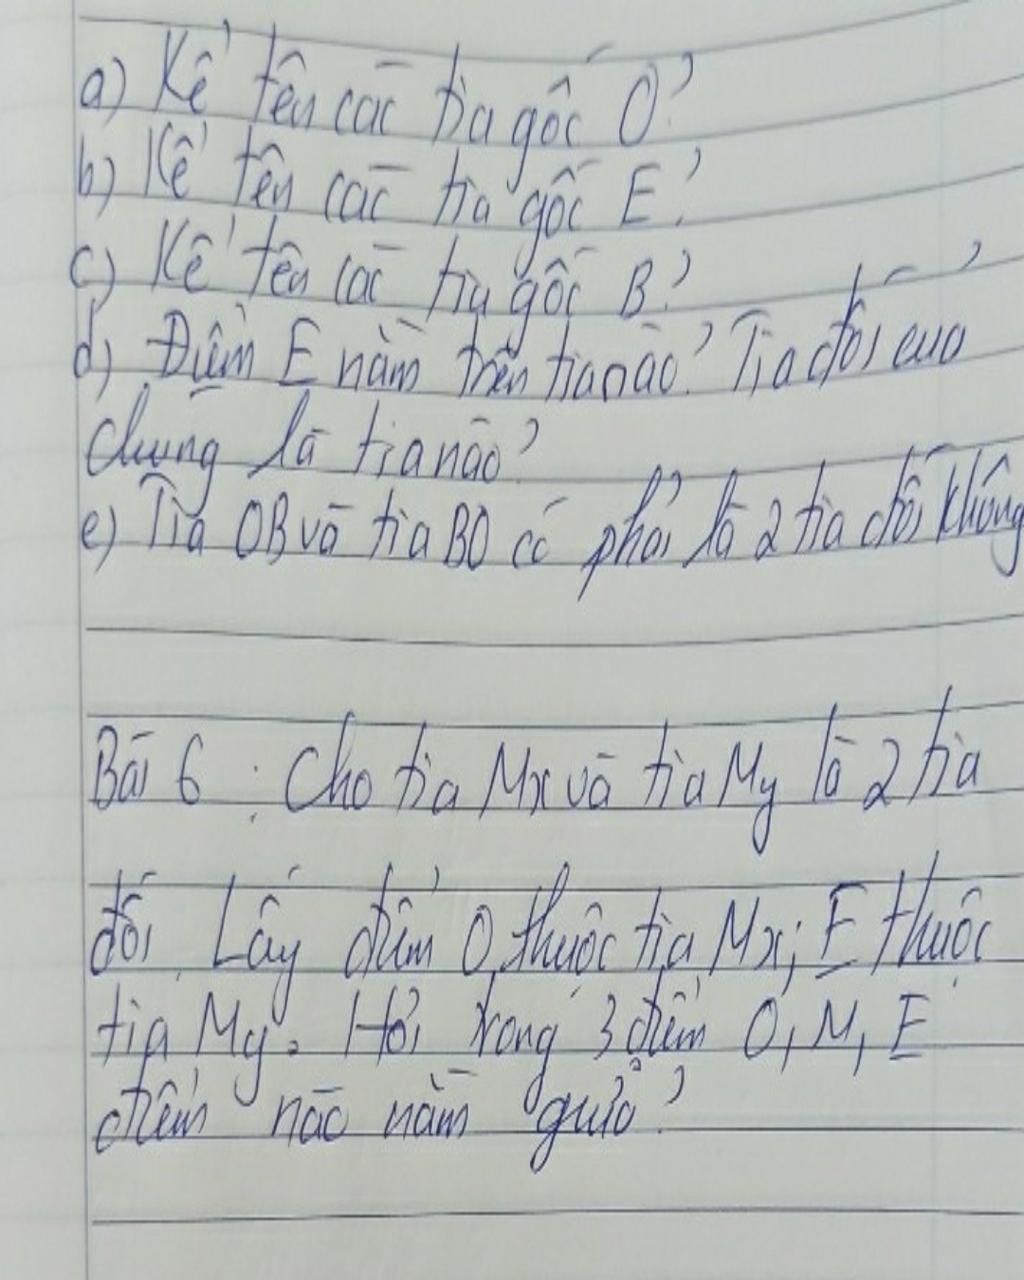 a) Kể tên các tia gốc O?
b) Kể tên các tia gốc E?
c) Kể tên các tia gốc B?
d) Điểm E nằm trên tia nào? Tia đối của
chúng là tia nào?
e) Tia OB và tia BO có phải là 2 tia đối không
Bài 6 : Cho tia Mx và tia My là 2 tia
đối. Lấy điểm O thuộc tia Mx; E thuộc
tia My. Hỏi trong 3 điểm O, M, E
điểm nào nằm giữa?